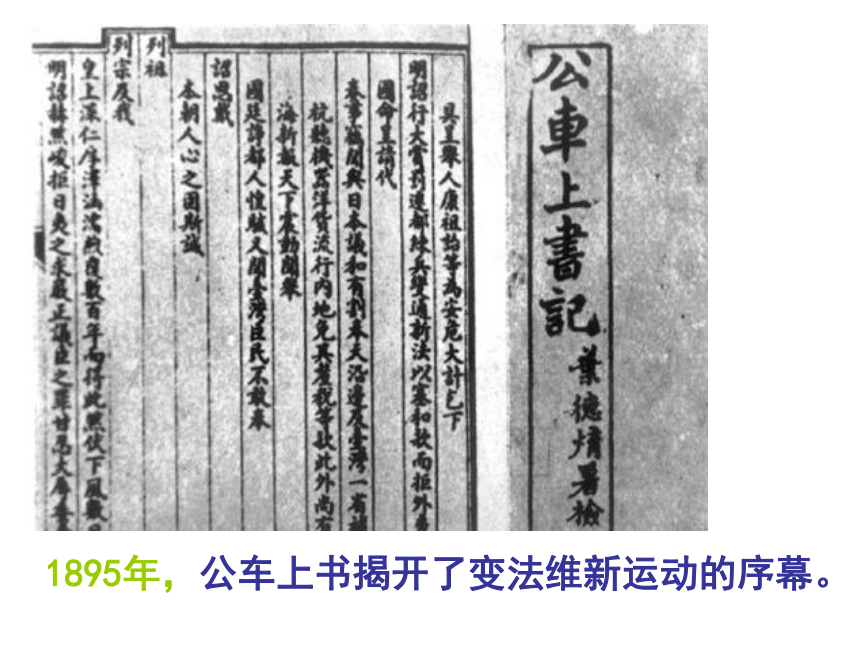 公車上書記
葉德署檢
具呈舉人康祖詒等為安危大計乞下
明詔行大賞罰遷都練兵變通新法以塞和款而拒外
國命呈請代
奏事竊聞與日本議和有割奉天沿邊及臺灣一省
杭聽機器洋貨流行內地免其釐稅等款此外尚有
海新報天下震動聞舉
國廷諍都人惶駭又聞臺灣臣民不敢奉
詔思戴
本朝人心之固斯誠
列祖
列宗及我
皇上深仁厚澤涵濡煦覆數百年而得此然伏下風數
明詔赫然峻拒日夷之求嚴正議臣之罪甘忍大辱
1895年，公车上书揭开了变法维新运动的序幕。